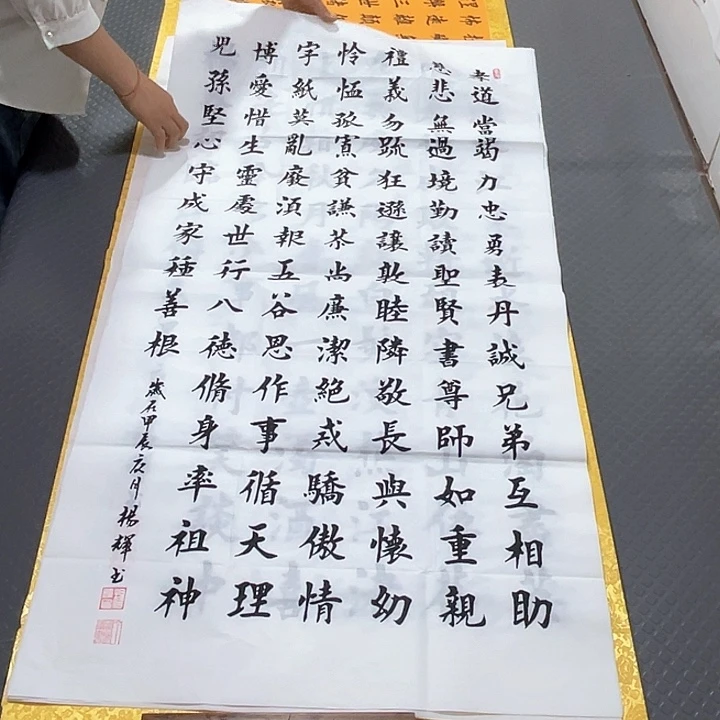 孝道當竭力忠勇表丹誠兄弟互相助
慈悲無過境勤讀聖賢書尊師如重親
禮義勿疏狂遜讓敦睦隣敬長與懷幼
怜恤孤寡貧謙恭尚廉潔絕戒驕傲情
字紙莫亂廢須報五谷恩作事循天理
博愛惜生靈處世行八德脩身率祖神
兒孫堅心守成家種善根
歲在甲辰月楊輝書